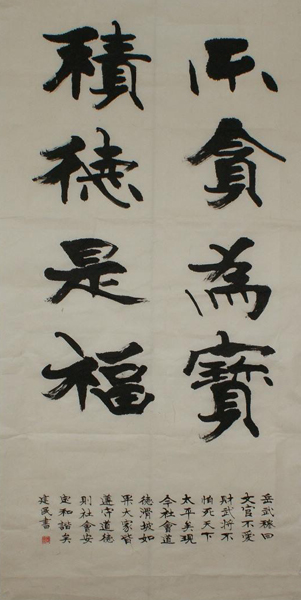 不貪為寶
積德是福
岳武穆曰
文官不愛
財武將不
怕死天下
太平矣現
今社會道
德滑坡如
果大家皆
遵守道德
則社會安
定和諧矣
建民書